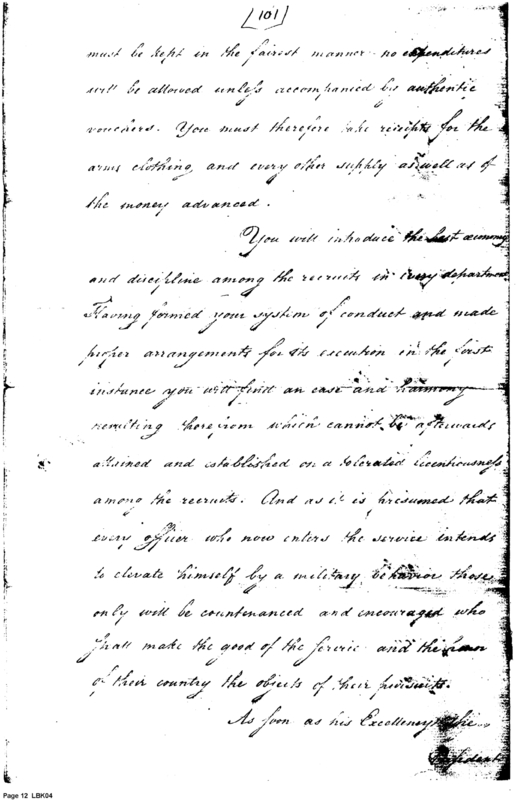 [101]
must be kept in the fairest manner no expenditures
will be allowed unless accompanied by authentic
vouchers. You must therefore take receipts for the
arms clothing, and every other supply as well as of
the money advanced.
You will introduce the best œconomy
and discipline among the recruits in every department
Having formed your system of conduct and made
proper arrangements for its execution in the first
instance you will find an ease and harmony
resulting therefrom which cannot be afterwards
attained and established on a tolerated licentiousness
among the recruits. And as it is presumed that
every officer who now enters the service intends
to elevate himself by a military behavior those
only will be countenanced and encouraged who
shall make the good of the service and the honor
of their country the objects of their pursuits.
As soon as his Excellency the
President
Page 12 LBK04